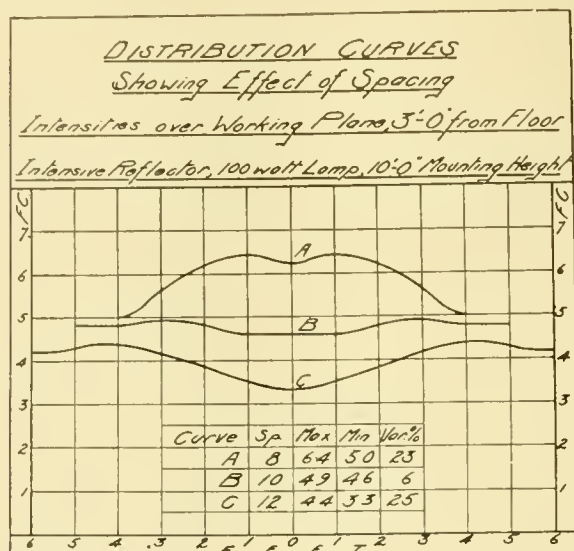 DISTRIBUTION CURVES
Showing Effect of Spacing
Intensities over Working Plane, 3'-0" from Floor
Intensive Reflector, 100 watt Lamp, 10'-0" Mounting Height
FC FC
7 7
A
6 6
5 5
B
4 4
C
3 3
Curve Sp Max Min Var.%
2 2
A 8 64 50 23
B 10 49 46 6
1 1
C 12 44 33 25
6 5 4 .3 2 1 0 1 2 3 4 5 6
F E E T